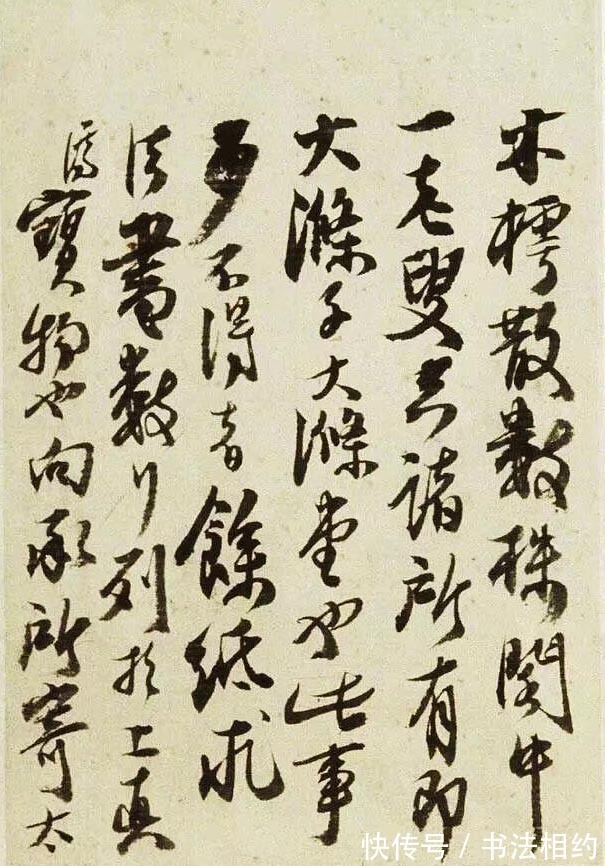 木樗散數株閣中
一老叟空諸所有即
大滌子大滌堂也此事
少不得者餘紙求
法書數行列於上真
濟寶物也向承所寄太
快传号 / 书法相约